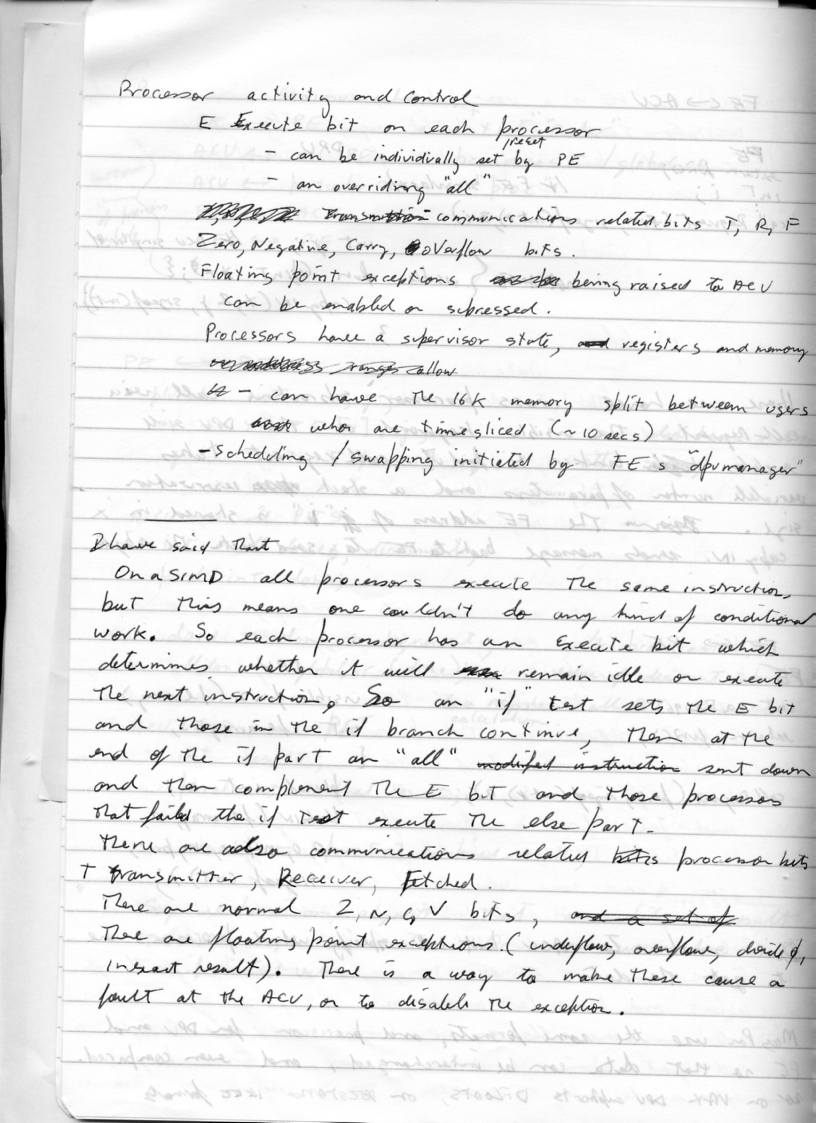 Processor activity and control
E Execute bit on each processor
- can be individially set by PE
/reset
- an overriding "all"
communications related bits T, R, F
Zero, Negative, Carry, Overflow bits.
Floating point exceptions being raised to ACU
can be enabled or subressed.
Processors have a supervisor state, and registers and memory
ranges allow
- can have the 16K memory split between users
who are timesliced (~10 secs)
- scheduling / swapping initiated by FE s "dpumanager"
I have said that
On a SIMD all processors execute the same instruction,
but this means one couldn't do any kind of conditional
work. So each processor has an Execute bit which
determines whether it will remain idle or execute
the next instruction. So an "if" test sets the E bit
and those in the if branch continue, then at the
end of the if part an "all" modified instruction sent down
and then complement the E bit and those processors
that faild the if test execute the else part.
There are also communications related bits processor bits
T transmitter, Receiver, Fetched.
There are normal Z, N, C, V bits, and a set of
There are floating point exceptions. (underflow, overflow, divide ϕ,
inexact result). There is a way to make these cause a
fault at the ACU, or to disable the exception.